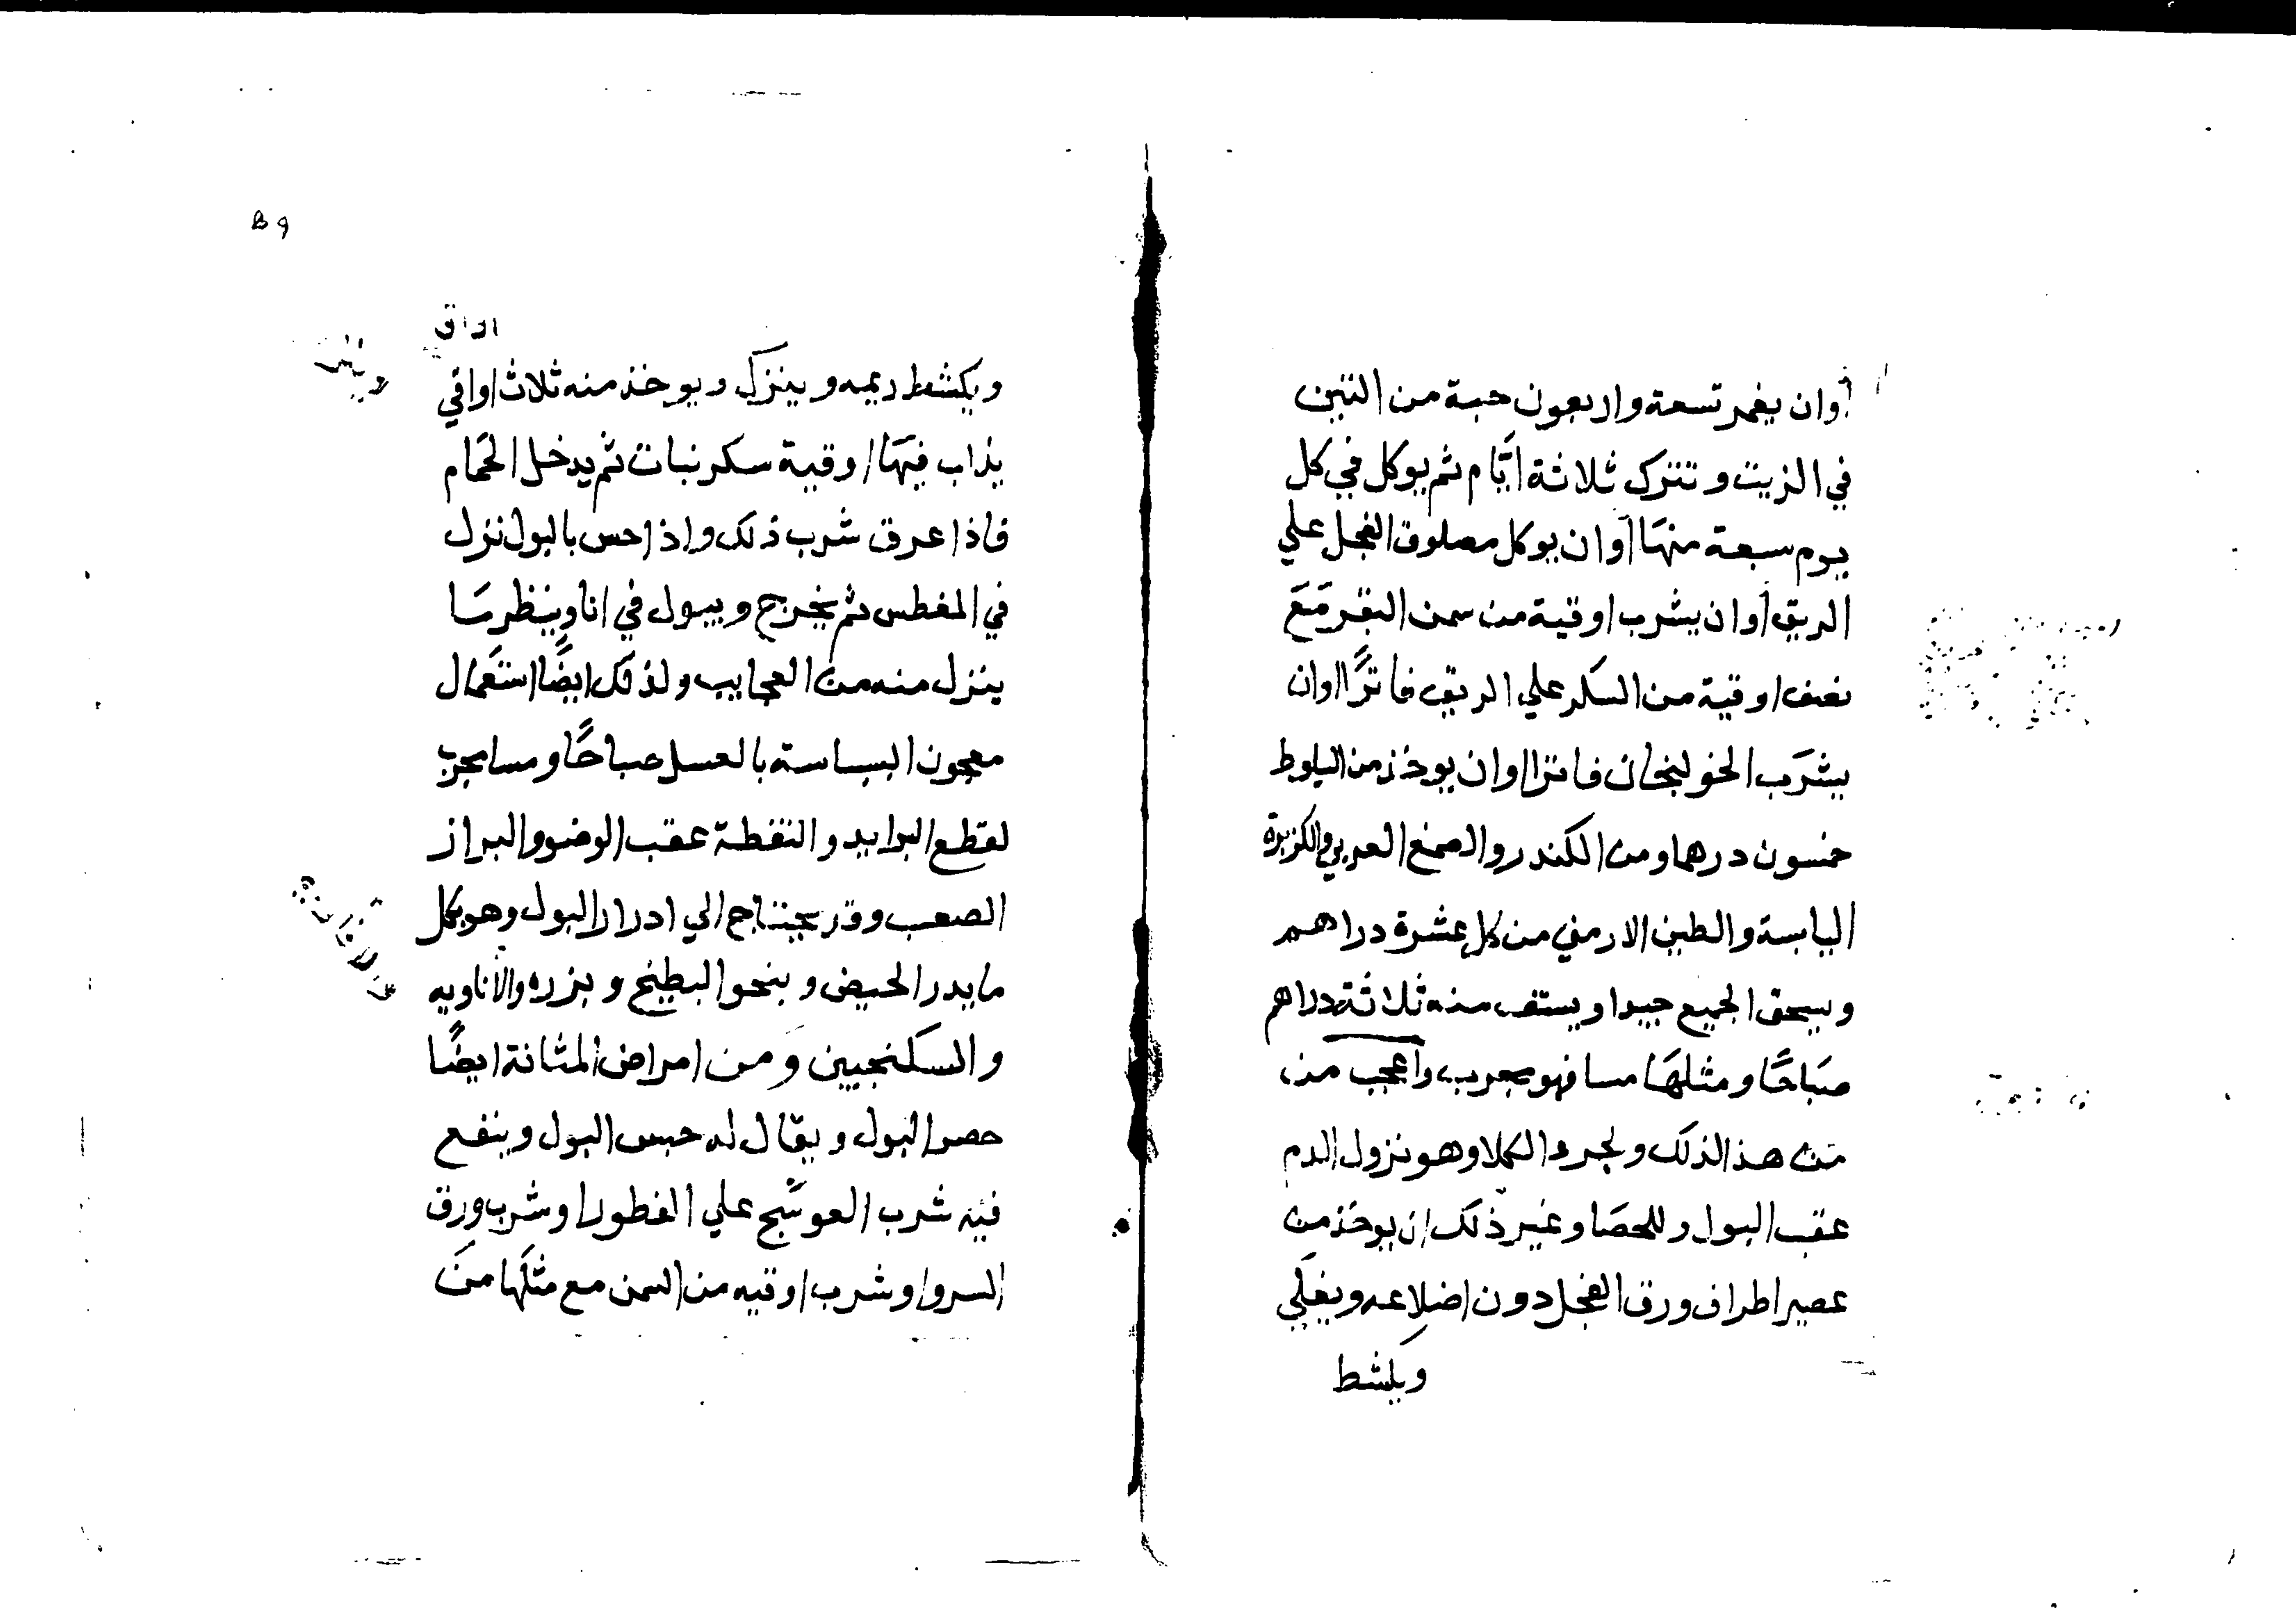 أوان يغمر تسعة واربعون حبة من التين
في الزيت وتترك ثلاثة ايَّام ثم يوكل في كل
يوم سبعة منهَا أوان يوكل مصلوق الفجل علي
الريق أوان يشرب اوقية من سمن البقر مَعَ
نصف اوقية من السكر علي الريق فاترًا اوان
يشرَب الخولنجان فاترا اوان يوخذ من البلوط
خمسون درهما ومن الكندر والصمغ العربي والكزبرة
اليابسة والطين الارمني من كل عشرة دراهم
ويسحق الجميع جيدا ويستف منه ثلاثة دراهم
صَبَاحًا ومثلهَا مسا فهو مجرب واعجب من
من هذا لذلك ولجرء الكلا وهو نزول الدم
عقب البول وللحصَا وغير ذلك ان يوخذ من
عصير اطراف ورق الفجل دون اضلاعه ويغلي
ويكشط
B9
ويكشط ريمه وينزل ويوخذ منه ثلاث اواقي
يذاب فيهَا اوقية سكر نبات ثم يدخل الحَمام
فاذا عرق شرب ذلك واذا حس بالبول نزل
في المغطس ثم يخرج ويبول في انا وينظر مَا
ينزل منه من العجايب ولذلك ايضًا استعَمال
معجون البسباسة بالعسل صباحًا ومسا مجرب
لقطع البرايد والنقطة عقب الوضو والبراز
الصعب وقد يحتاج الي ادرار البول وهو بكل
ما يدر الحيض وبنحو البطيخ وبزره والاناويه
والسكنجبين ومن امراض المثانة ايضًا
حصر البول ويقال له حبس البول وينفع
فيه شرب العوسج علي الفطور اوشرب ورق
السرو اوشرب اوقيه من السمن مع مثلَها منَ